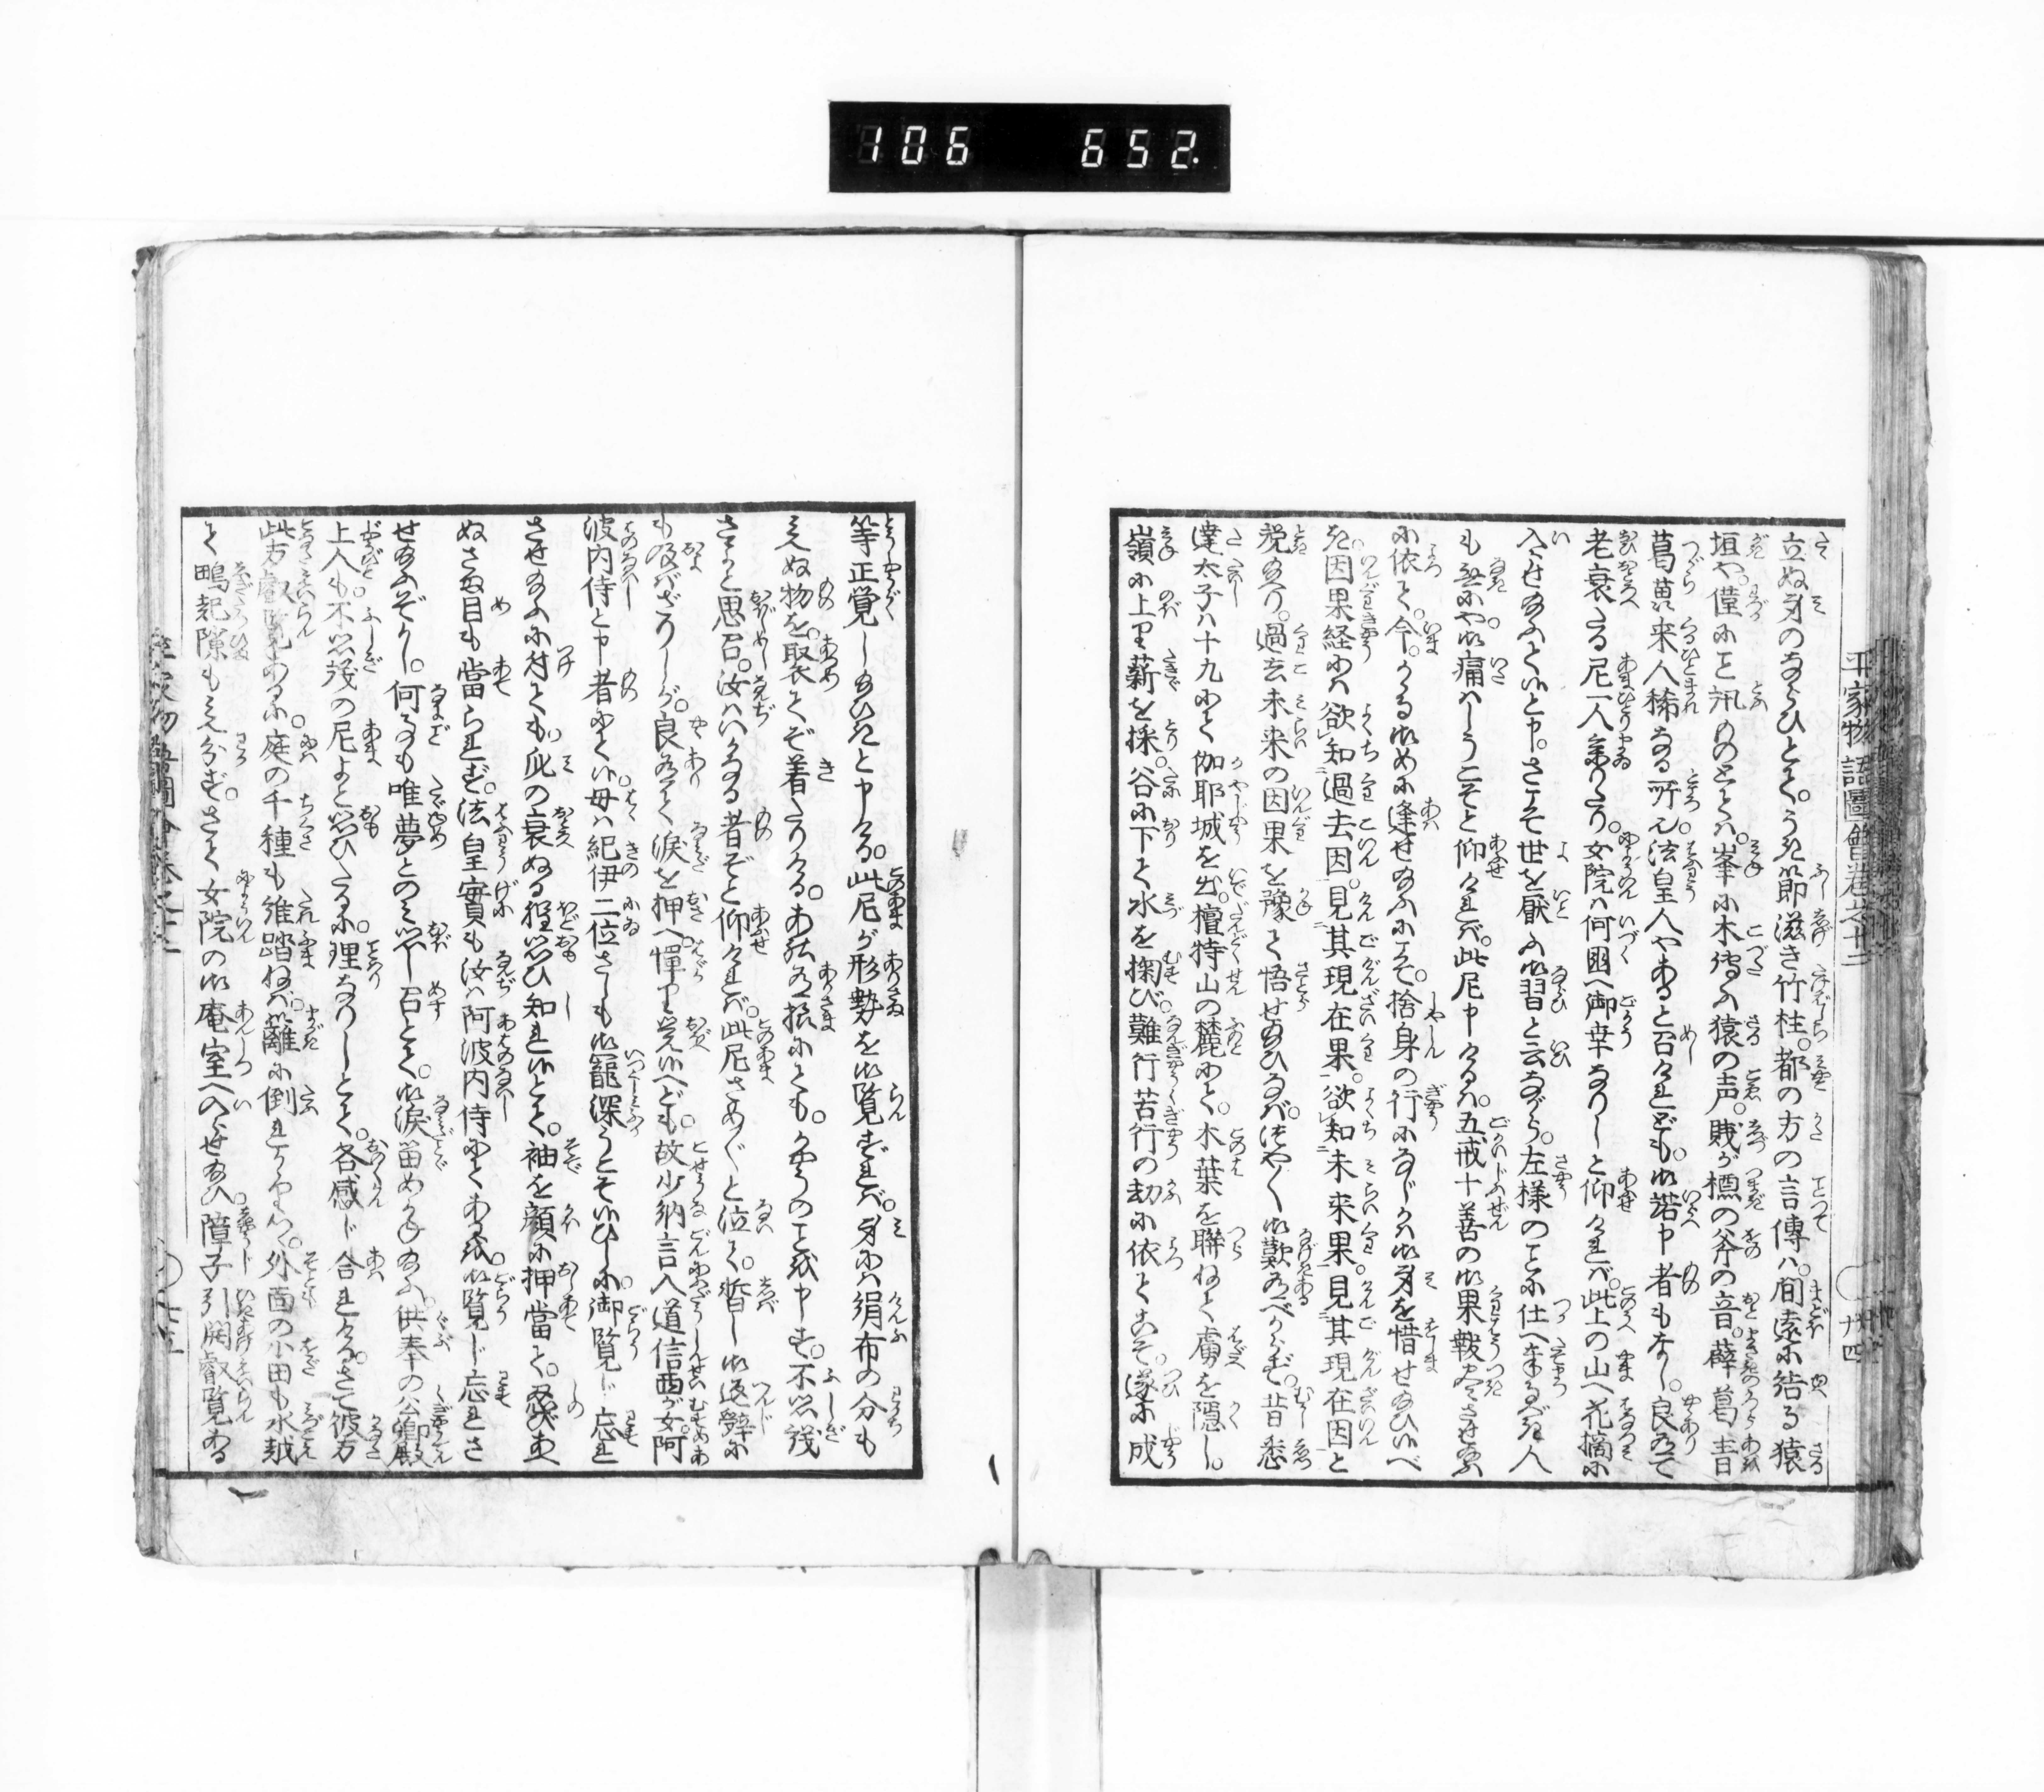 106 652.
平家物語圖會巻之十二
十四
立ぬ身のならひとて。うき節滋き竹柱。都の方の言傳ハ。間遠に結る猿
垣や。僅にこと訊ものとてハ。峯に木傳ふ猿の声。賎が樵の斧の音。薜葛青
葛蔂来人稀なる所也。法皇人やあると召けれども。御諾申者もなし。良有て
老衰たる尼一人参りたり。女院ハ何國へ御幸なりしと仰けれバ。此上の山へ花摘に
入せ給ふて候と申。さこそ世を厭ふ御習と云ながら。左様のことに仕へ奉るべき人
も無にや。御痛ハしうこそと仰けれバ。此尼申けるハ。五戒十善の御果報尽させ給ふ
に依て。今。かゝる御めに逢せ給ふにこそ。捨身の行になじかハ御身を惜せ給ひ候べ
き。因果経にハ欲知過去因。見其現在果。欲知未来果。見其現在因と
説給り。過去未来の因果を豫て悟せ給ひなバ。つや〱御歎有べからず。昔悉
達太子ハ十九にて伽耶城を出。檀特山の麓にて。木葉を聯ねて膚を隠し。
嶺に上り薪を採。谷に下て水を掬び。難行苦行の劫に依てこそ。遂に成
等正覚し給ひきと申ける。此尼が形勢を御覧ずれバ。身にハ絹布の分も
みえぬ物を。取衣てぞ着たりける。あの有様にても。かやうのこと申す。不思議
さよと思召。汝ハいかなる者ぞと仰けれバ。此尼さめ〲と泣て。暫し御返辞に
も及バざりしが。良有て涙を押へ。憚申覚候へども。故少納言入道信西が女。阿
波内侍と申者にて候。母ハ紀伊二位さしも御寵深うこそ候ひしに。御覧じ忘れ
させ給ふに付ても。身の衰ぬる程思ひ知れ候とて。袖を顔に押當て。忍びあ
ぬさま目も當られず。法皇實も汝ハ阿波内侍にてあるな。御覧じ忘れさ
せ給ふぞかし。何事も唯夢とのミ思し召とて。御涙留めかね給ふ。供奉の公卿殿
上人も。不思議の尼よと思ひたるに。理なりしとて。各感じ合れける。さて彼方
此方叡覧あるに。庭の千種も誰踏ねバ。籬に倒れかゝりつゝ。外面の小田も水越
て鴫起隙もみえ分ず。さて女院の御庵室へ入らせ給ひ。障子引開叡覧ある